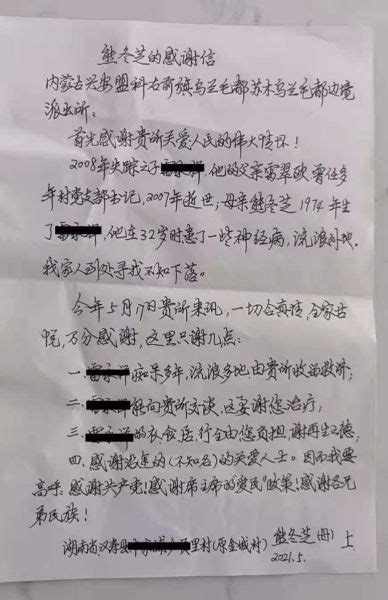 熊冬芝的感谢信
内蒙古兴安盟科右前旗乌兰毛都苏木乌兰毛都边境
派出所:
首先感谢贵所关爱人民的伟大情怀!
2008年失踪之子,他的父亲雷翠欧,曾任多
年村党支部书记,2007年逝世;母亲熊冬芝1974年生
了,他在32岁时患了一些神经病,流浪外地。
我家人到处寻找不知下落。
今年5月17日贵所来讯,一切合真情,全家喜
悦,万分感谢,这里只谢几点:
一.痴呆多年,流浪多地由贵所收苗救济;
二.能向贵所交谈,这要谢您治疗;
三.的衣食住,行全由您负担,谢再生之德;
四.感谢沿途的(不知名)的关爱人士。因而我要
高呼,感谢共产党!感谢席主席的爱民"政策!感谢各兄
弟民族!
湖南省汉寿县里村(原金城村) 熊冬芝(母) 上
2021.5.